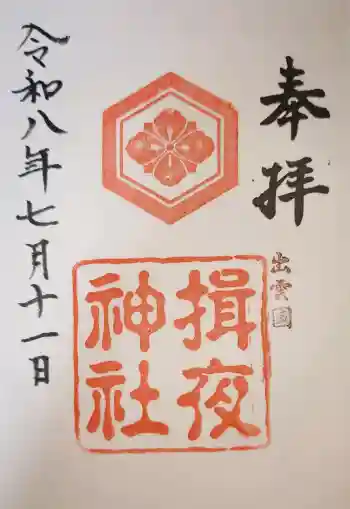 奉拝
出雲国
揖夜
神社
令和八年七月十一日